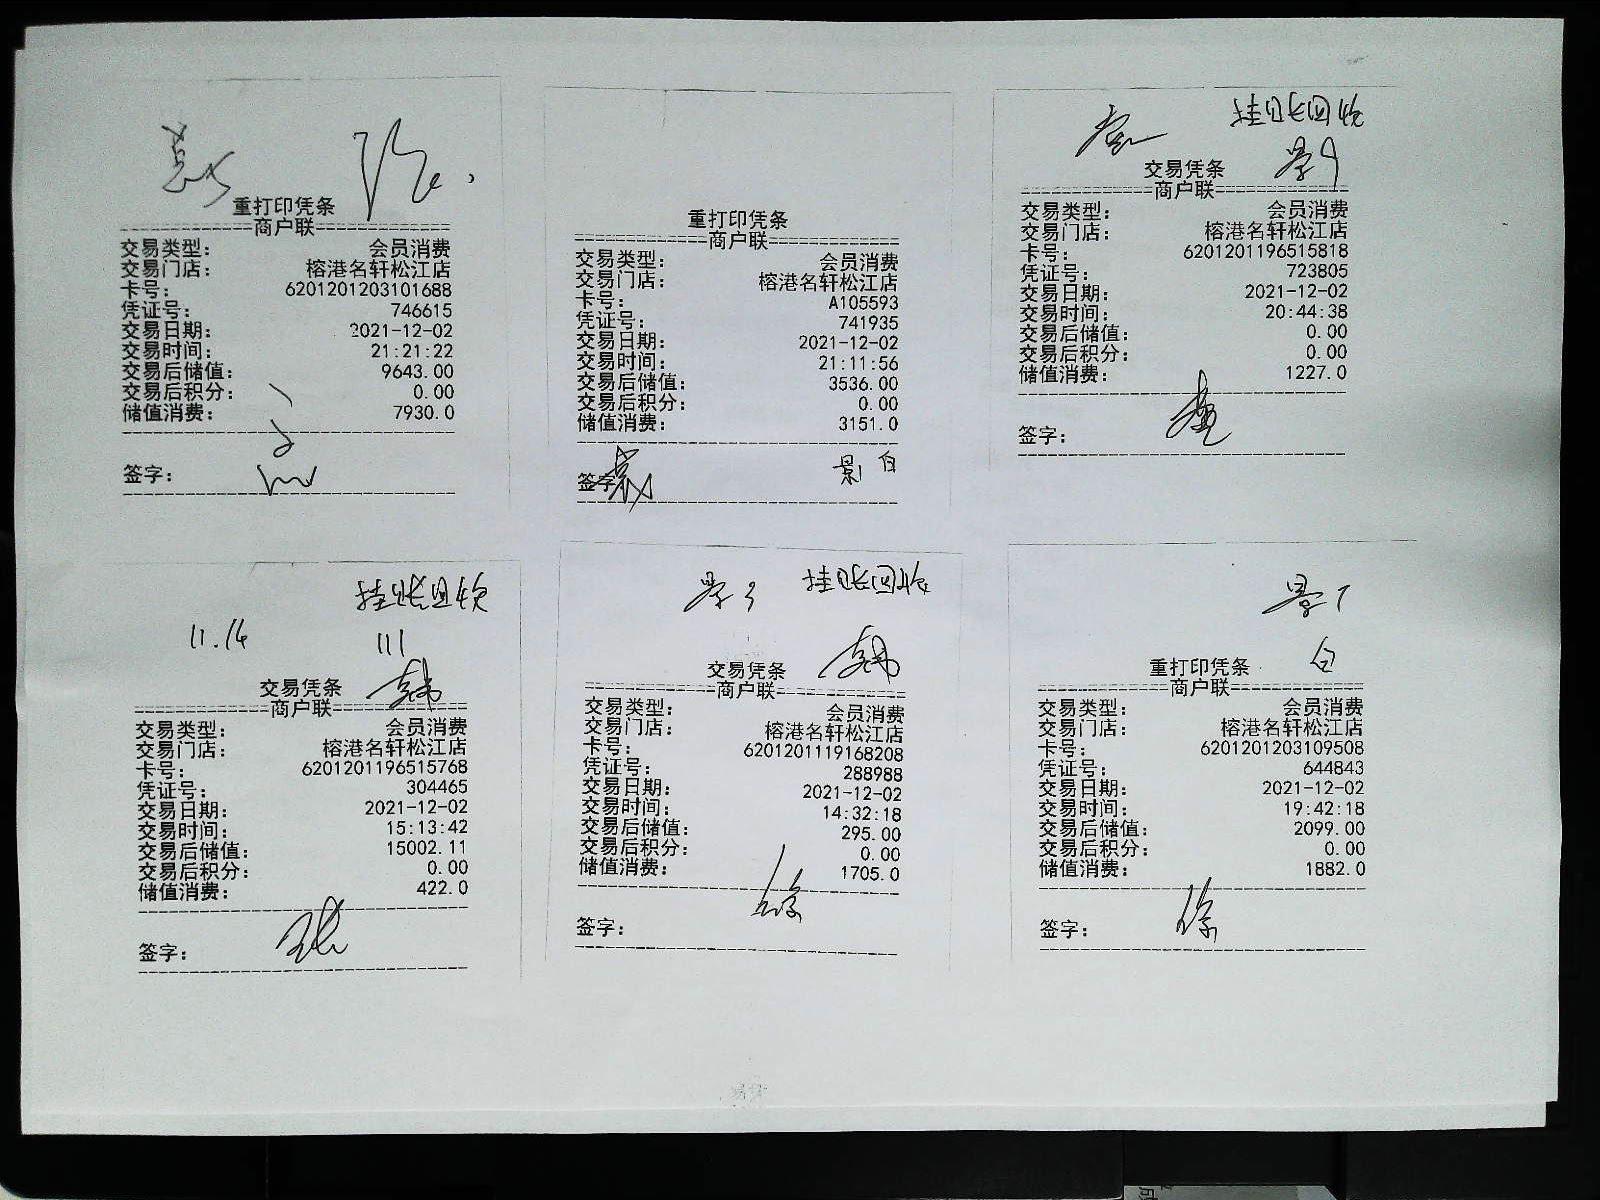 重打印凭条
商户联
交易类型： 会员消费
交易门店： 榕港名轩松江店
卡号： 6201201203101688
凭证号： 746615
交易日期： 2021-12-02
交易时间： 21:21:22
交易后储值： 9643.00
交易后积分： 0.00
储值消费： 7930.0
签字：
重打印凭条
商户联
交易类型： 会员消费
交易门店： 榕港名轩松江店
卡号： A105593
凭证号： 741935
交易日期： 2021-12-02
交易时间： 21:11:56
交易后储值： 3536.00
交易后积分： 0.00
储值消费： 3151.0
签字
景 白
挂账回收
交易凭条
商户联
交易类型： 会员消费
交易门店： 榕港名轩松江店
卡号： 6201201196515818
凭证号： 723805
交易日期： 2021-12-02
交易时间： 20:44:38
交易后储值： 0.00
交易后积分： 0.00
储值消费： 1227.0
签字：
挂账回收
11.14 111
交易凭条
商户联
交易类型： 会员消费
交易门店： 榕港名轩松江店
卡号： 6201201196515768
凭证号： 304465
交易日期： 2021-12-02
交易时间： 15:13:42
交易后储值： 15002.11
交易后积分： 0.00
储值消费： 422.0
签字：
景3 挂账回收
交易凭条
商户联
交易类型： 会员消费
交易门店： 榕港名轩松江店
卡号： 6201201119168208
凭证号： 288988
交易日期： 2021-12-02
交易时间： 14:32:18
交易后储值： 295.00
交易后积分： 0.00
储值消费： 1705.0
签字：
景7
白
重打印凭条
商户联
交易类型： 会员消费
交易门店： 榕港名轩松江店
卡号： 6201201203109508
凭证号： 644843
交易日期： 2021-12-02
交易时间： 19:42:18
交易后储值： 2099.00
交易后积分： 0.00
储值消费： 1882.0
签字：
徐